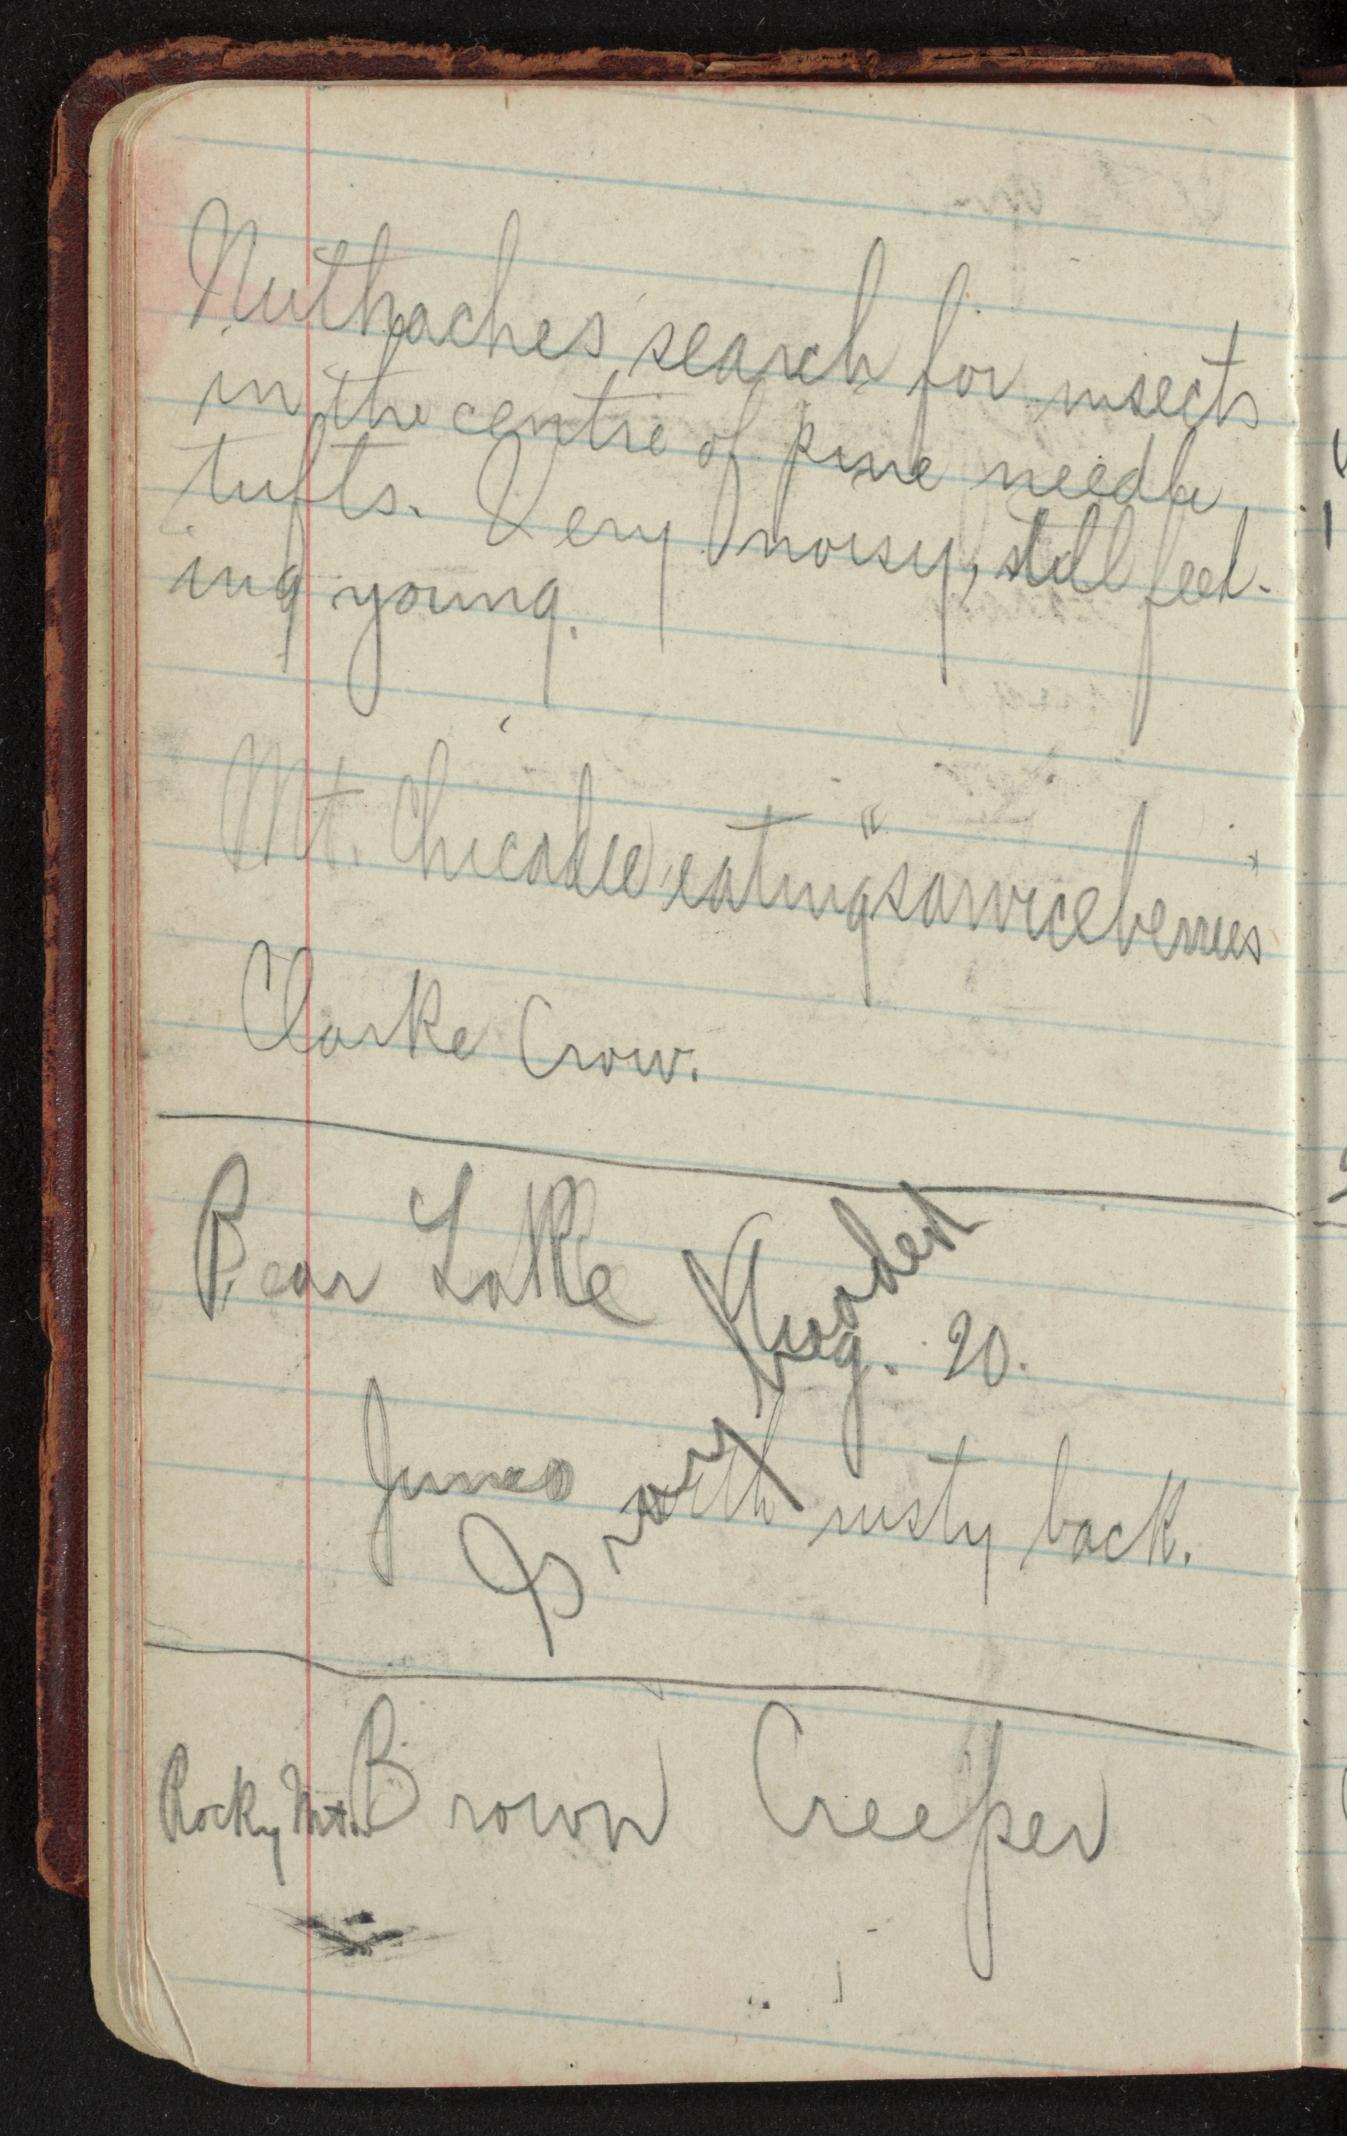 Nuthaches search for insects
in the centre of pine needle
tufts. Very noisy, still feed-
ing young.
Mt. Chicadee eating "sarviceberries"
Clarke Crow.
Bear Lake
Aug. 20.
Junco with rusty back.
Gray Headed
Rocky Mt. Brown Creeper